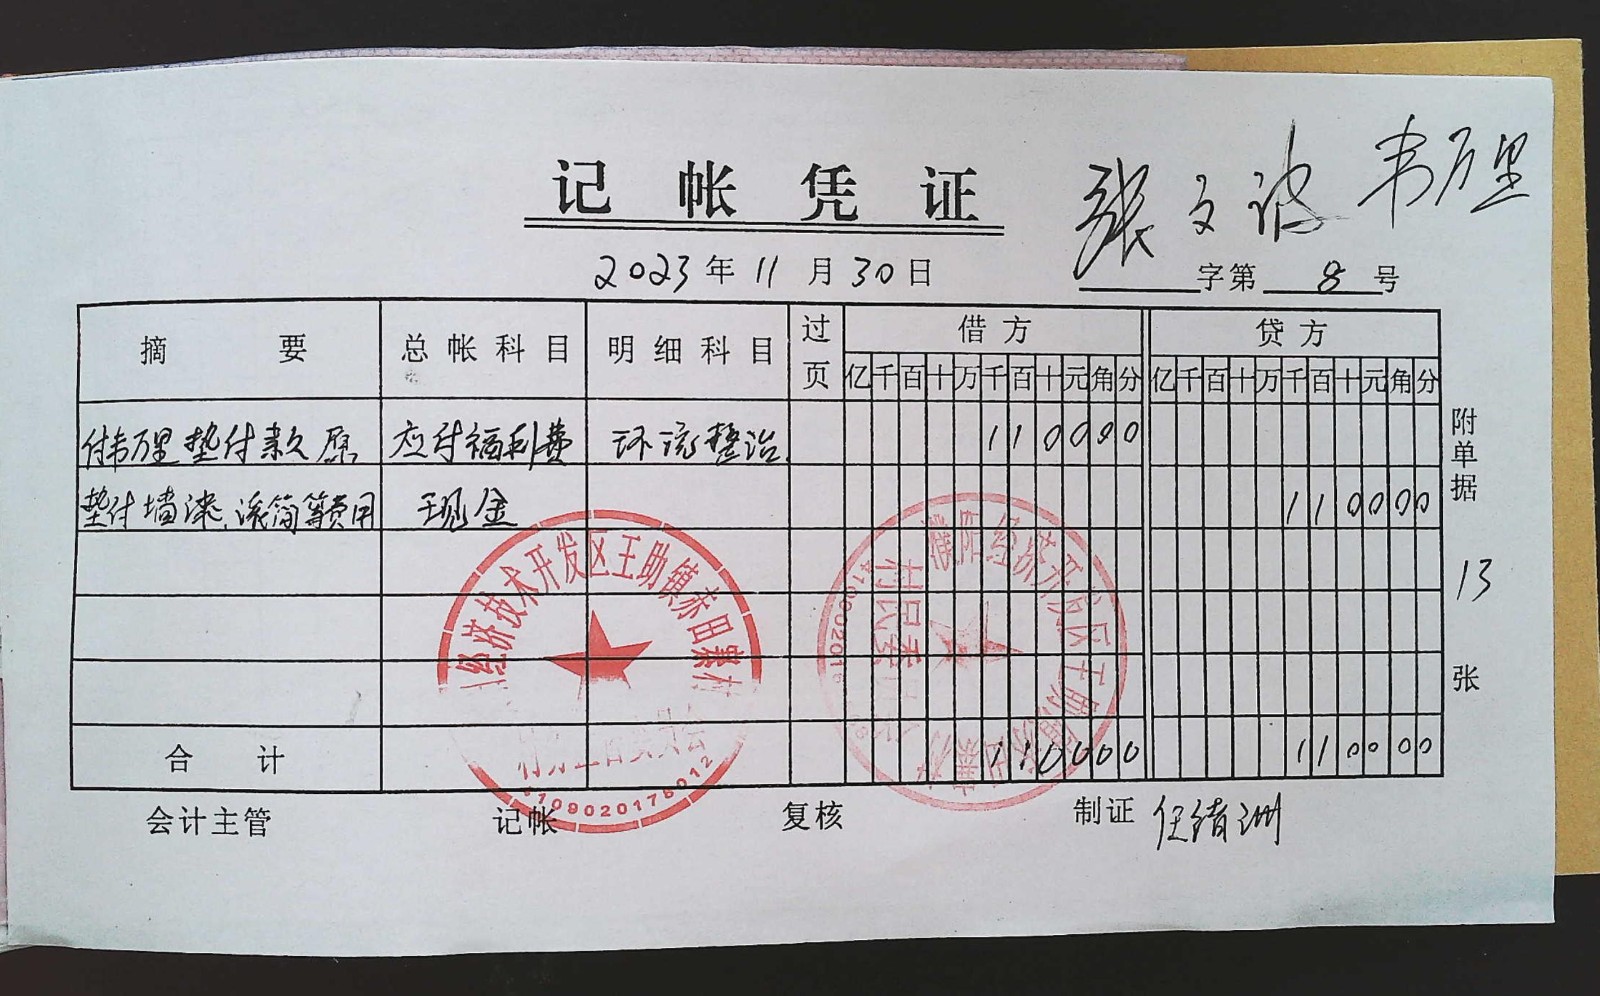 记帐凭证
张文波 韦万里
2023年11月30日
字第 8 号
摘要 总帐科目 明细科目 过页 借方 贷方
亿千百十万千百十元角分 亿千百十万千百十元角分
付韦万里垫付款 原 应付福利费 环境整治 110000
垫付墙漆、滚筒等费用 现金 110000
合计 110000 110000
附单据 13 张
会计主管 记帐 复核 制证
经济技术开发区王助镇
村务监督委员会
4109020176012
濮阳经济开发区王助镇
村民委员会